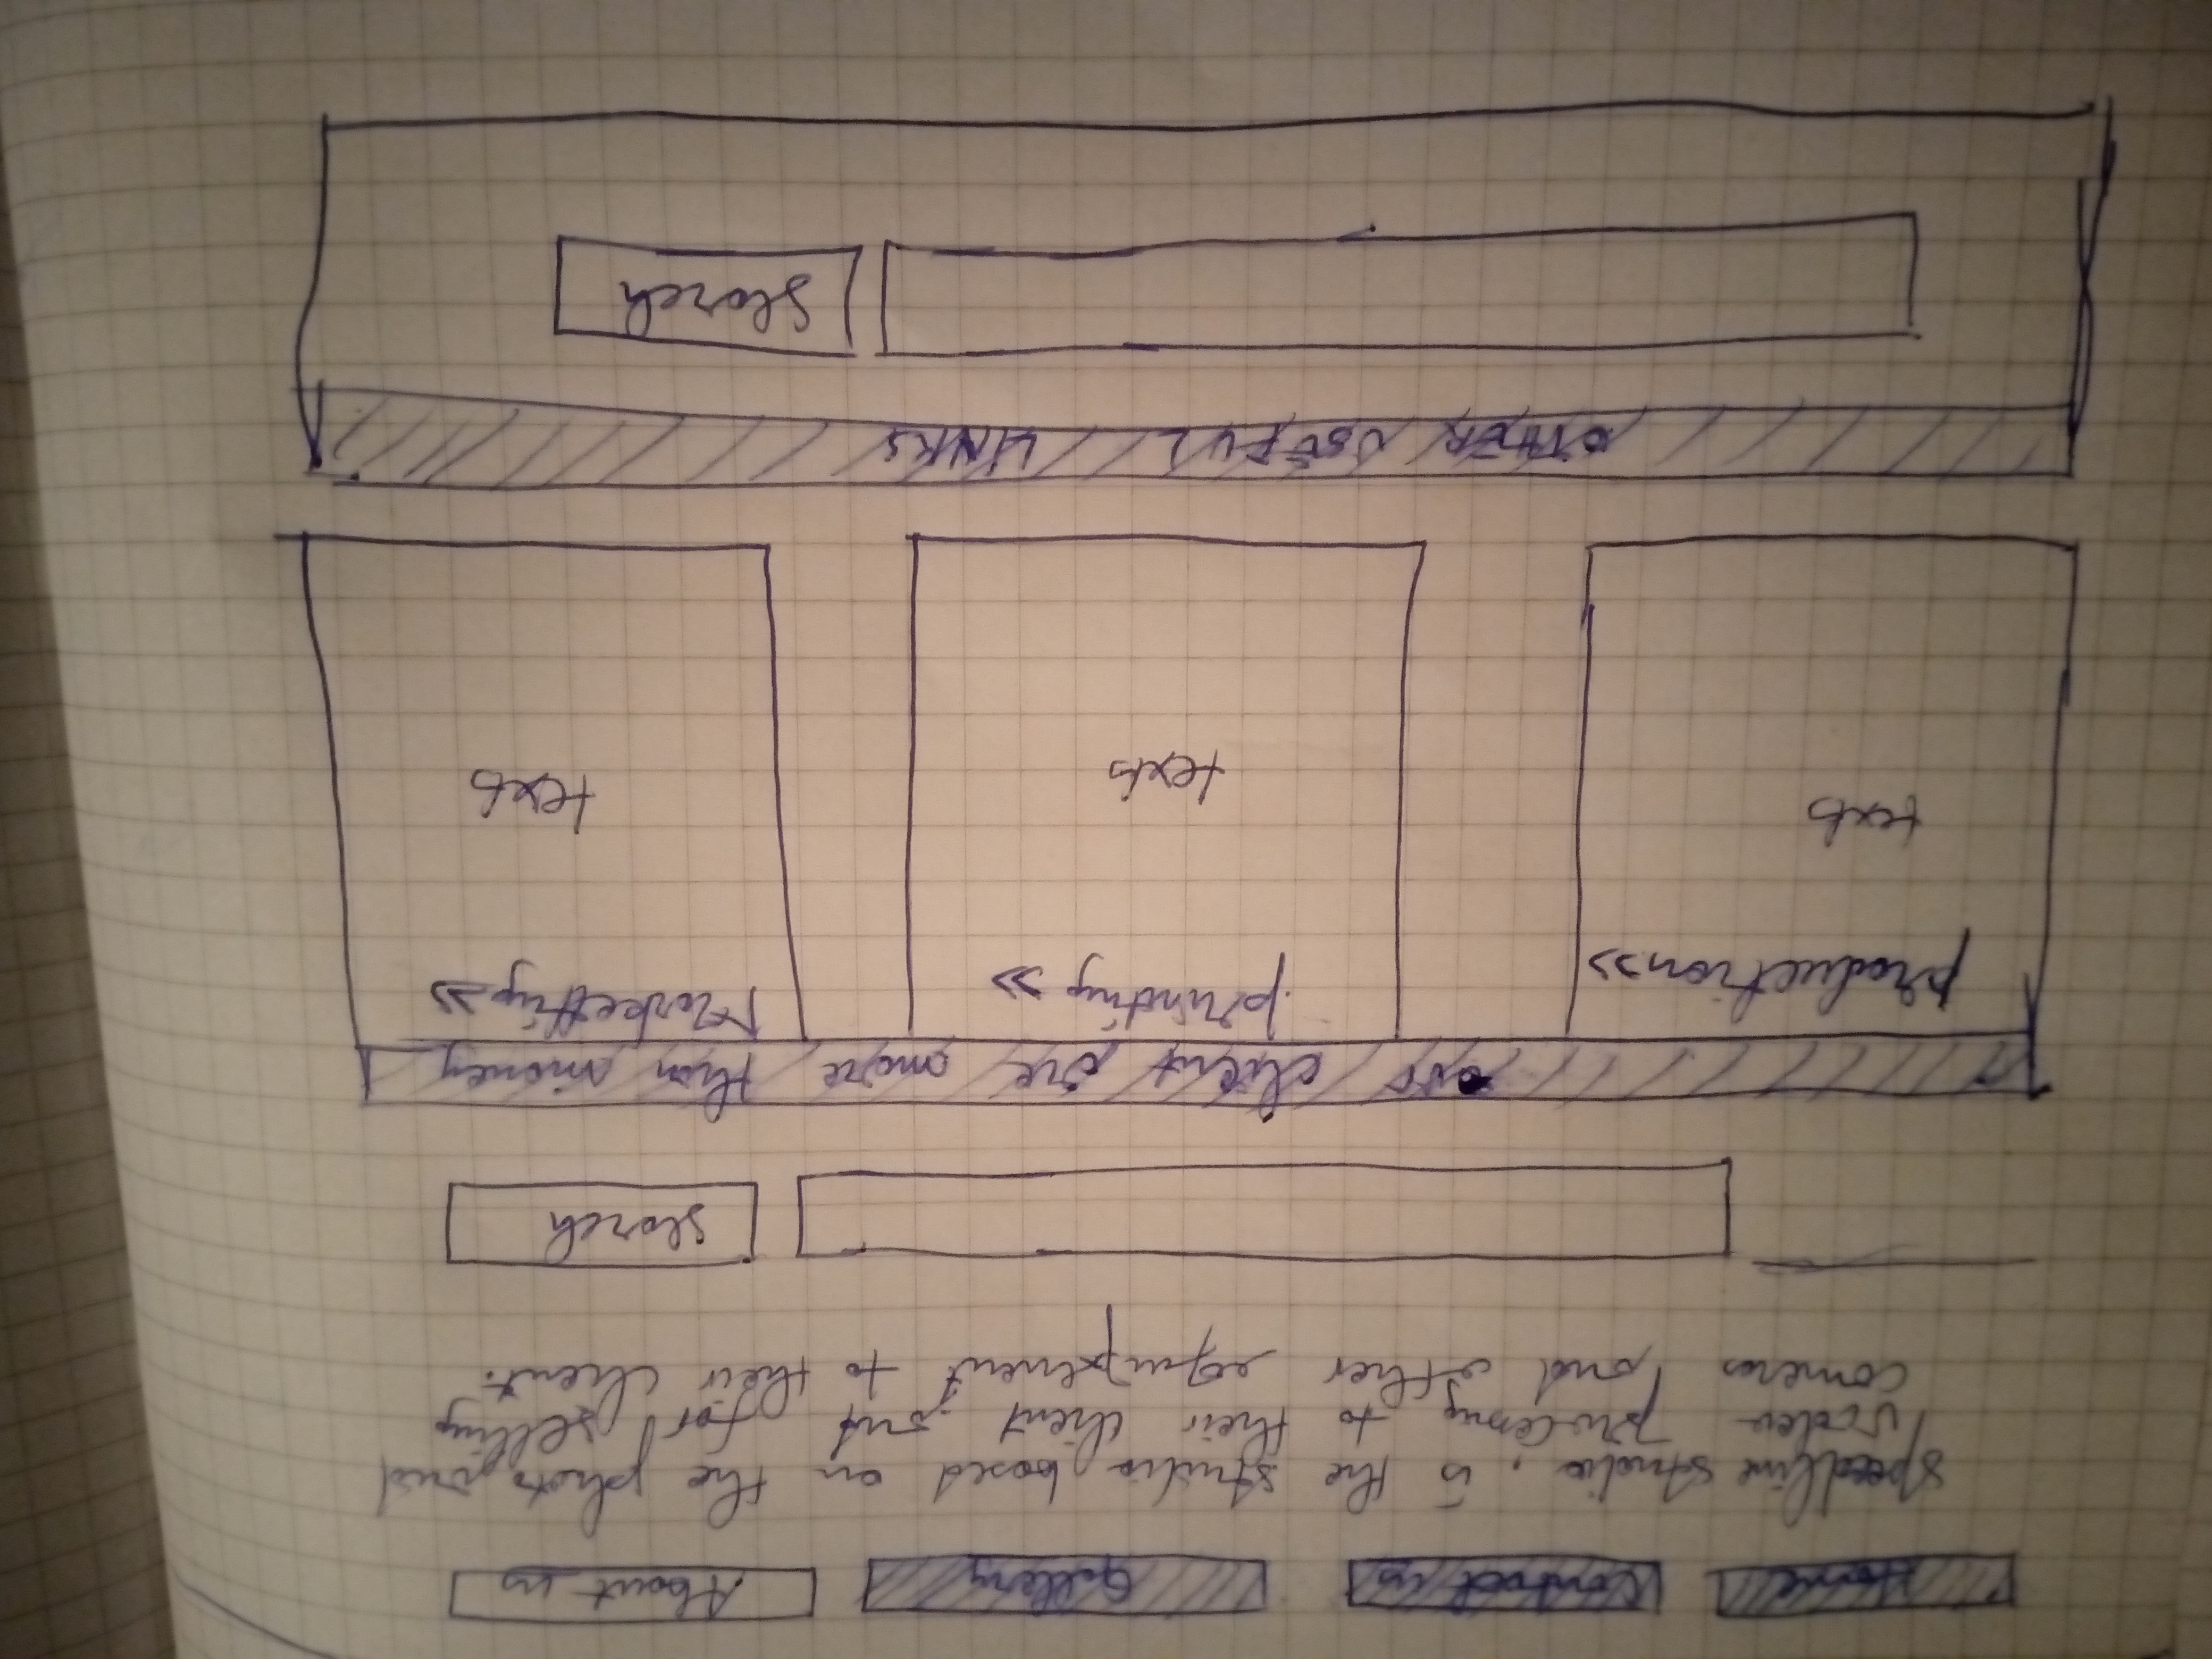 Home Contact us Gallery About us
speedline studio, is the studio based on the photo and
video processing to their client and for selling
cameras and other equipement to their client.
search
our client are more than money
production>> printing >> Marketting>>
texts texts texts
OTHER USEFUL LINKS
Search